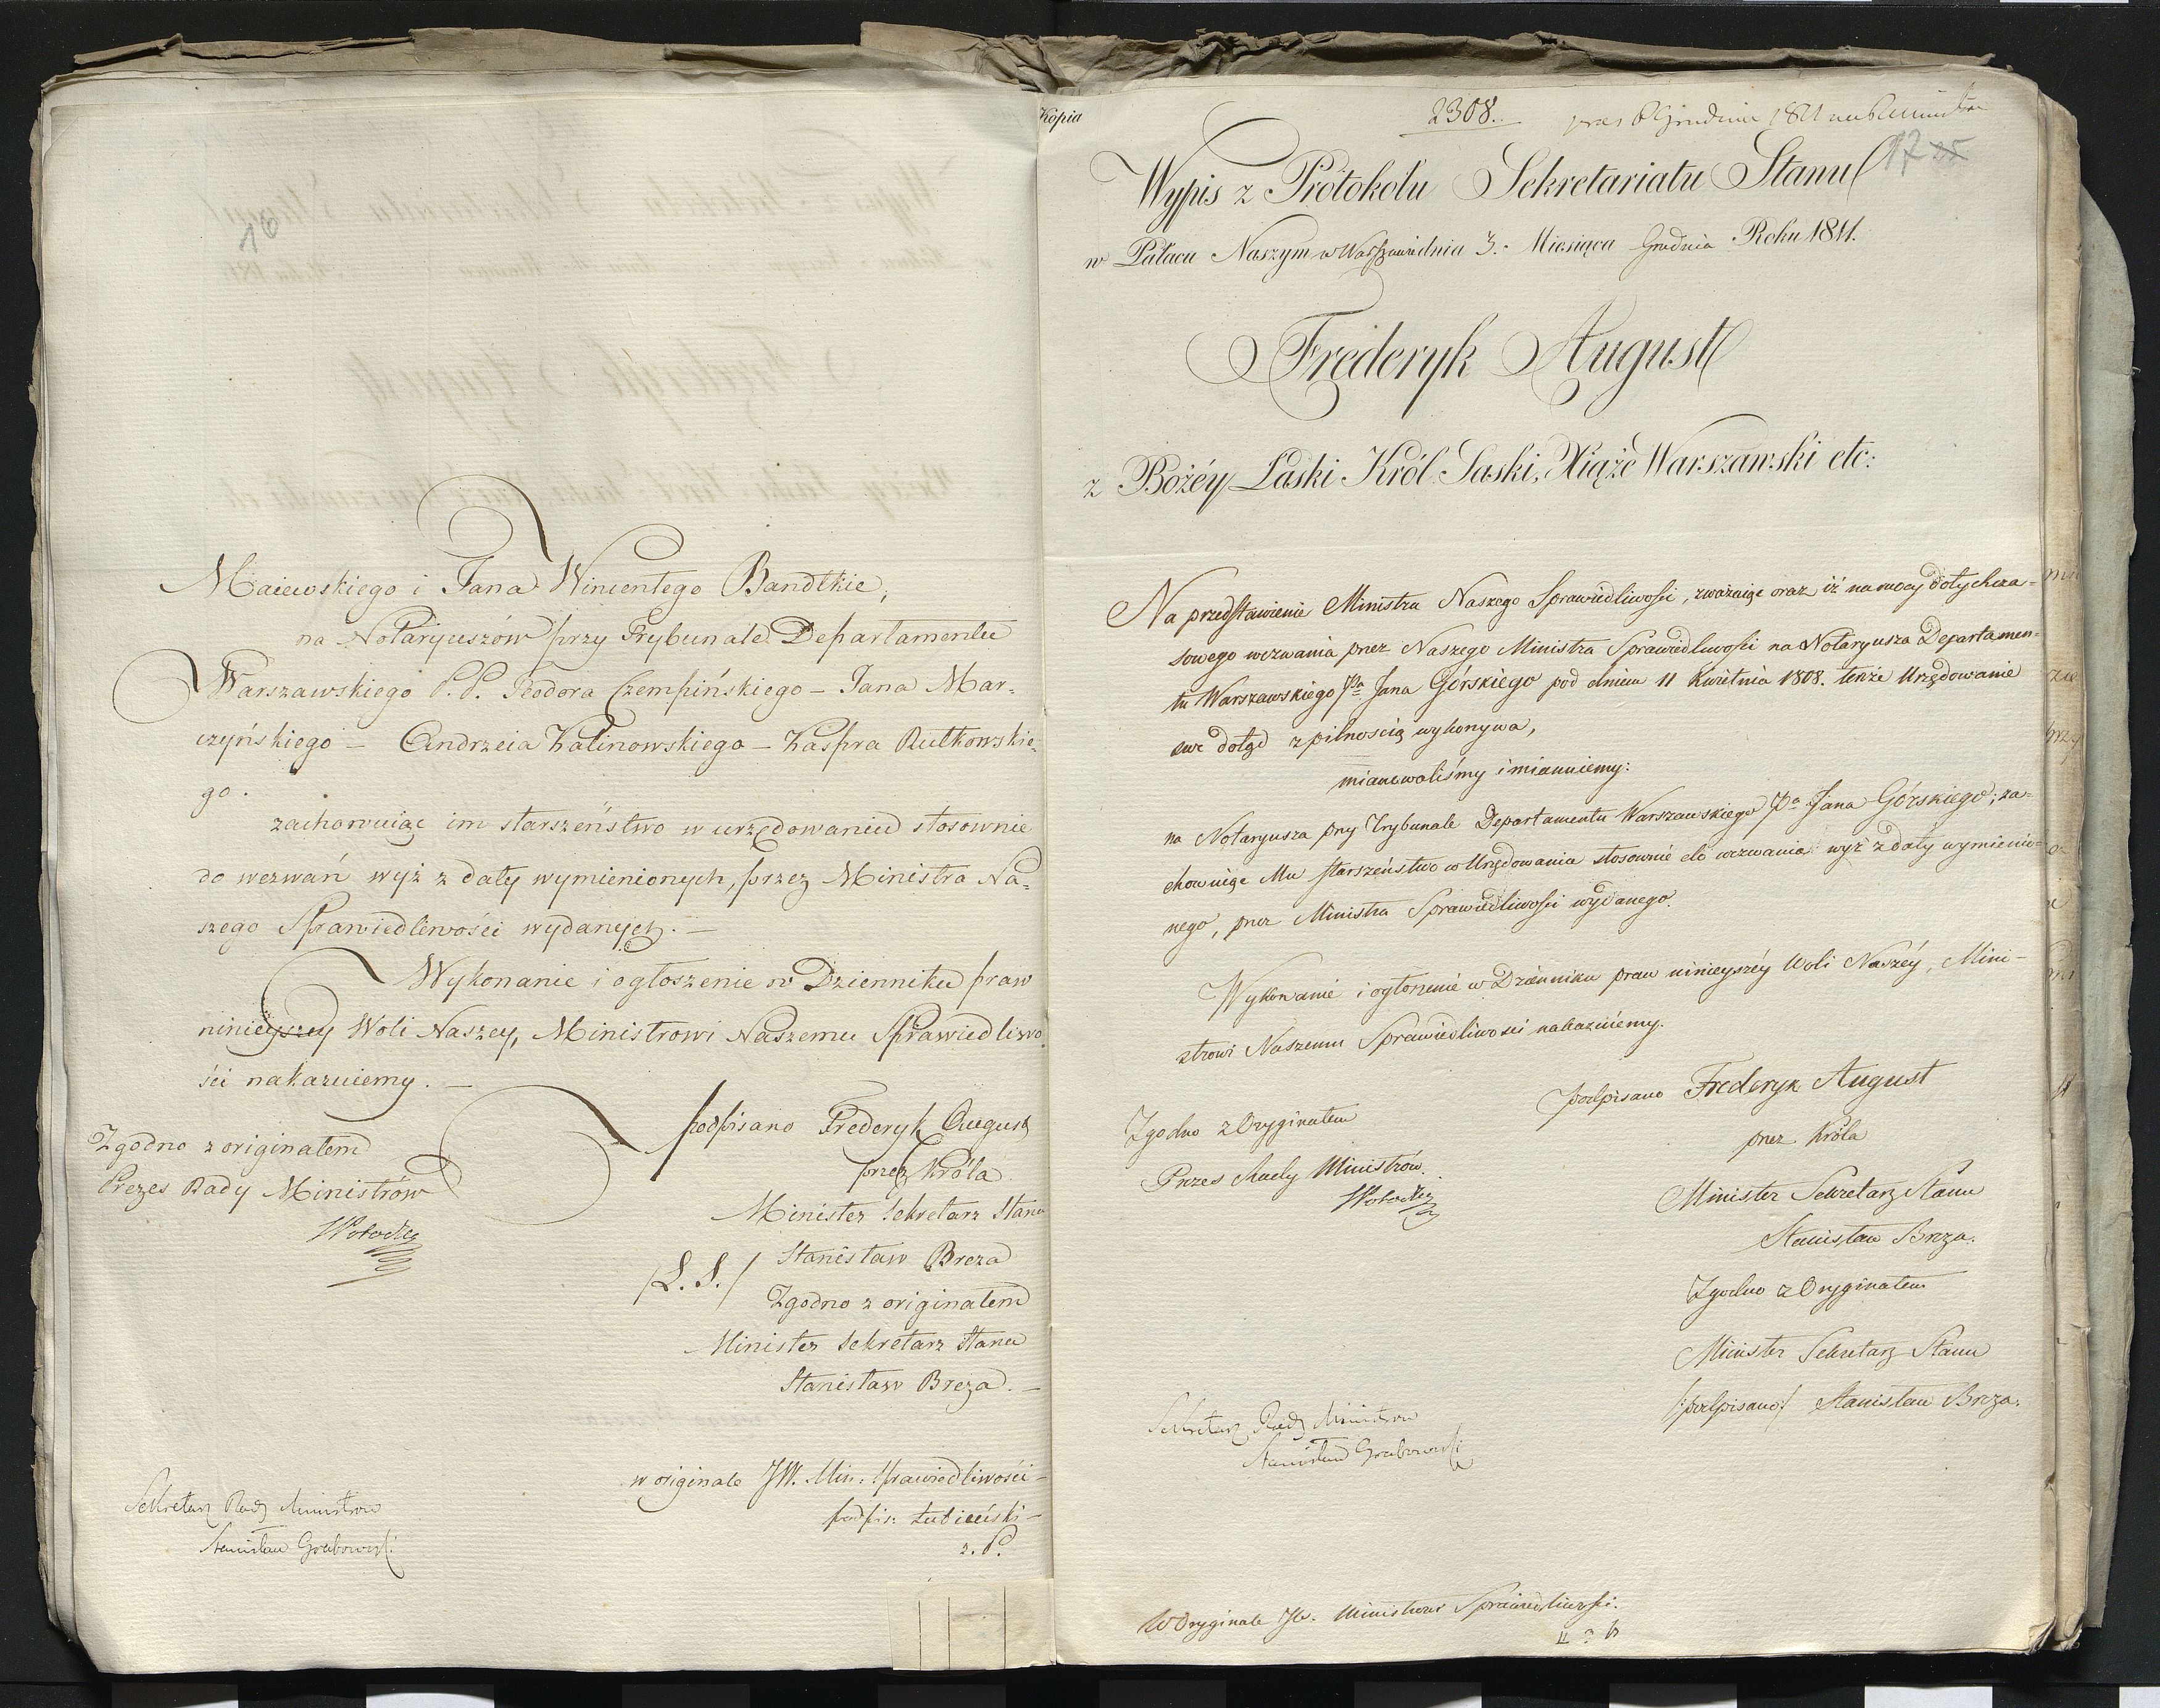 16
Maiewskiego i Jana Wincentego Bandtkie,
na Notaryuszów przy Trybunale Departamentu
Warszawskiego P. P. Teodora Czempińskiego – Jana Mar=
czyńskiego – Andrzeia Kalinowskiego – Kaspra Rutkowskie=
go.
zachowuiąc im starszeństwo w urzędowaniu stosownie
do wezwań wyż z daty wymienionych, przez Ministra Na=
szego Sprawiedliwości wydanych. –
Wykonanie i ogłoszenie w Dzienniku praw
ninieyszey Woli Naszey, Ministrowi Naszemu Sprawiedliwo=
ści nakazuiemy. –
podpisano Frederyk August
przez Króla
Minister Sekretarz Stanu
/L. S./ Stanisław Breza
Zgodno z originałem
Minister Sekretarz Stanu
Stanisław Breza. –
Zgodno z originałem
Prezes Rady Ministrów
Potocki
w originale JW. Min: Sprawiedliwości –
podpis: Łubieński –
z. P.
Sekretarz Rady Ministrow
Stanisław Grabowski
Kopia
2308.
Grudnia 1811
17
Wypis z Protokołu Sekretariatu Stanu
w Pałacu Naszym w Warszawie dnia 3. Miesiąca Grudnia Roku 1811.
Frederyk August
z Bożéy Łaski Król Saski, Xiąże Warszawski etc:
Na przedstawienie Ministra Naszego Sprawiedliwości, zważaiąc oraz iż na mocy dotychcza=
sowego wezwania przez Naszego Ministra Sprawiedliwości na Notaryusza Departamen=
tu Warszawskiego Pa Jana Górskiego pod dniem 11 Kwietnia 1808. tenże Urzędowanie
swe dotąd z pilnością wykonywa,
mianowaliśmy i mianuiemy:
na Notaryusza przy Trybunale Departamentu Warszawskiego Pa Jana Górskiego; za=
chowuiąc Mu starszeństwo w Urzędowaniu stosownie do wezwania wyż z daty wymienio=
nego, przez Ministra Sprawiedliwości wydanego.
Wykonanie i ogłoszenie w Dzienniku praw ninieyszéy Woli Naszéy, Mini=
strowi Naszemu Sprawiedliwości nakazuiemy.
podpisano Frederyk August
przez Króla
Minister Sekretarz Stanu
Stanisław Breza.
Zgodno z Oryginałem
Minister Sekretarz Stanu
/:podpisano:/ Stanisław Breza.
Zgodno z Oryginałem
Prezes Rady Ministrów.
Potocki
Sekretarz Rady Ministrow
Stanisław Grabowski
W Oryginale JW. Ministrowi Sprawiedliwości.